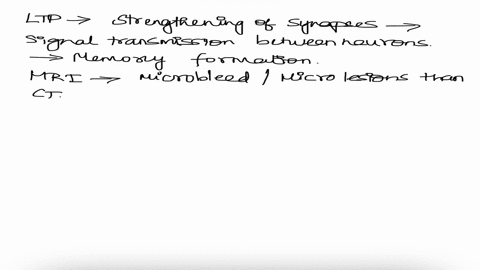 LTP → Strengthening of Synapses →
Signal transmission between neurons.
→ Memory formation.
MRI → Microbleed / Micro lesions than
CT.